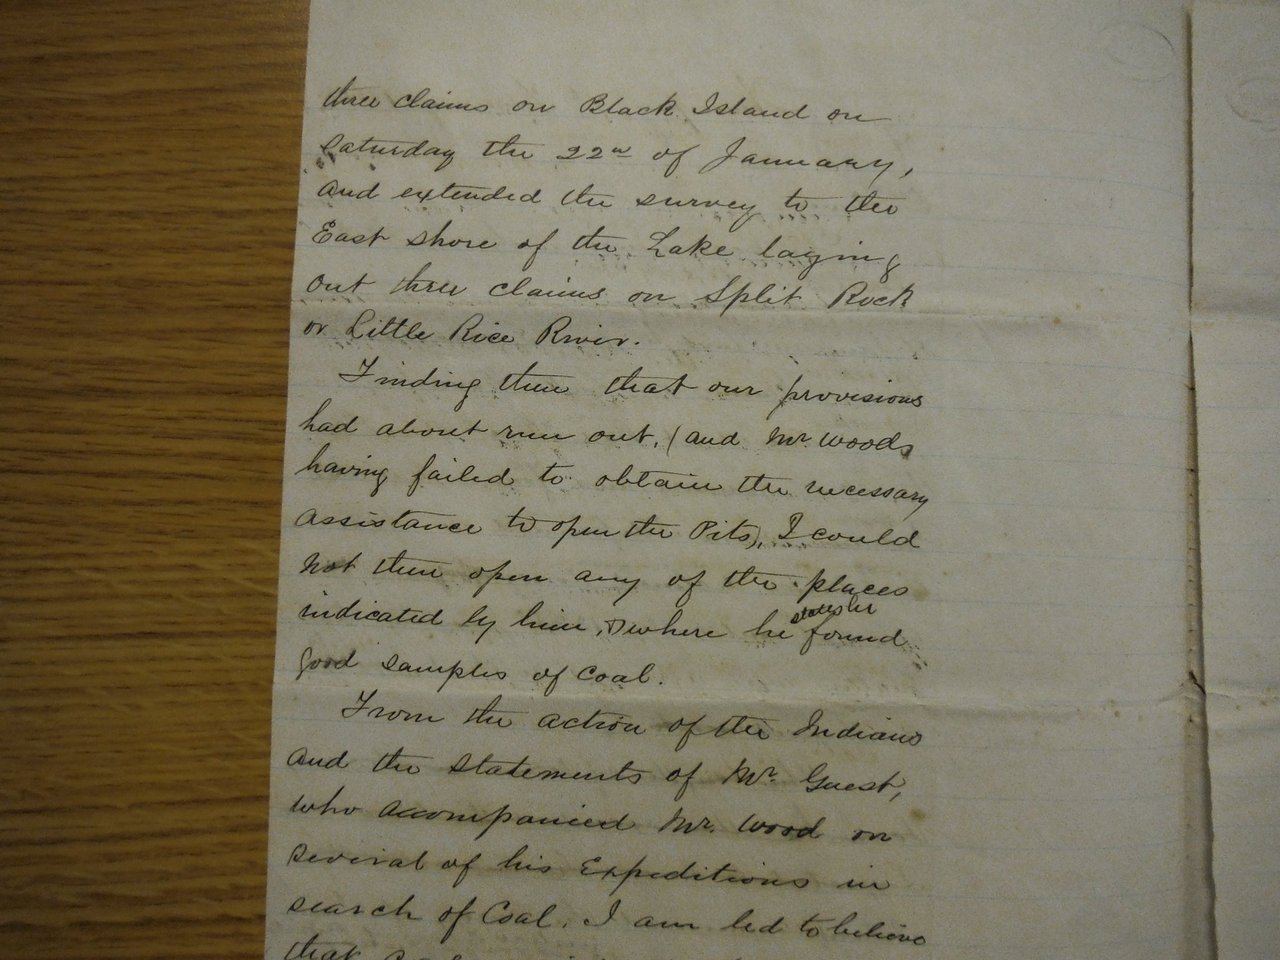 three claims on Black Island on
Saturday the 22nd of January,
and extended the survey to the
East shore of the Lake laying
out three claims on Split Rock
or Little Rice River.
Finding then that our provisions
had about run out, (and Mr. Woods
having failed to obtain the necessary
assistance to open the Pits), I could
not then open any of the places
indicated by him, & where he states he found
good samples of Coal.
From the action of the Indians
and the statements of Mr. Guest,
who accompanied Mr. Wood on
several of his Expeditions in
search of Coal, I am led to believe
that